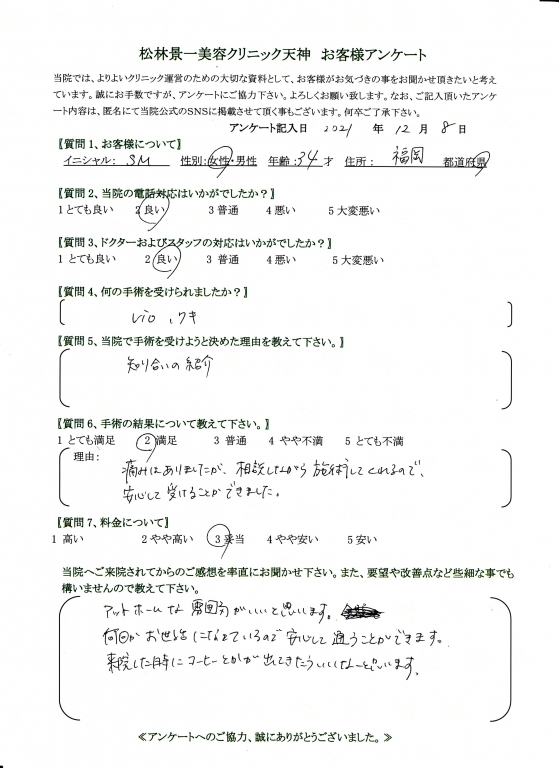 松林景一美容クリニック天神　お客様アンケート
当院では、よりよいクリニック運営のための大切な資料として、お客様がお気づきの事をお聞かせ頂きたいと考え
ています。誠にお手数ですが、アンケートにご協力下さい。よろしくお願い致します。なお、ご記入頂いたアンケ
ート内容は、匿名にて当院公式のSNSに掲載させて頂く事もございます。何卒ご了承下さい。
アンケート記入日　2021　年　12　月　8　日
〖質問1、お客様について〗
イニシャル：　SM　性別：女性・男性　年齢：34才　住所：　福岡　都道府県
〖質問2、当院の電話対応はいかがでしたか？〗
1とても良い　2良い　3普通　4悪い　5大変悪い
〖質問3、ドクターおよびスタッフの対応はいかがでしたか？〗
1 とても良い　2 良い　3 普通　4 悪い　5 大変悪い
〖質問4、何の手術を受けられましたか？〗
Vio、ワキ
〖質問5、当院で手術を受けようと決めた理由を教えて下さい。〗
知り合いの紹介
〖質問6、手術の結果について教えて下さい。〗
1 とても満足　2 満足　3 普通　4 やや不満　5 とても不満
理由：
痛みはありましたが、相談しながら施術してくれるので、
安心して受けることができました。
〖質問7、料金について〗
1 高い　2 やや高い　3 妥当　4 やや安い　5 安い
当院へご来院されてからのご感想を率直にお聞かせ下さい。また、要望や改善点など些細な事でも
構いませんので教えて下さい。
アットホームな雰囲気がいいと思います。
何回かお世話になっているので安心して通うことができます。
来院した時にコーヒーとかが出てきたらいいなーと思います。
≪アンケートへのご協力、誠にありがとうございました。≫